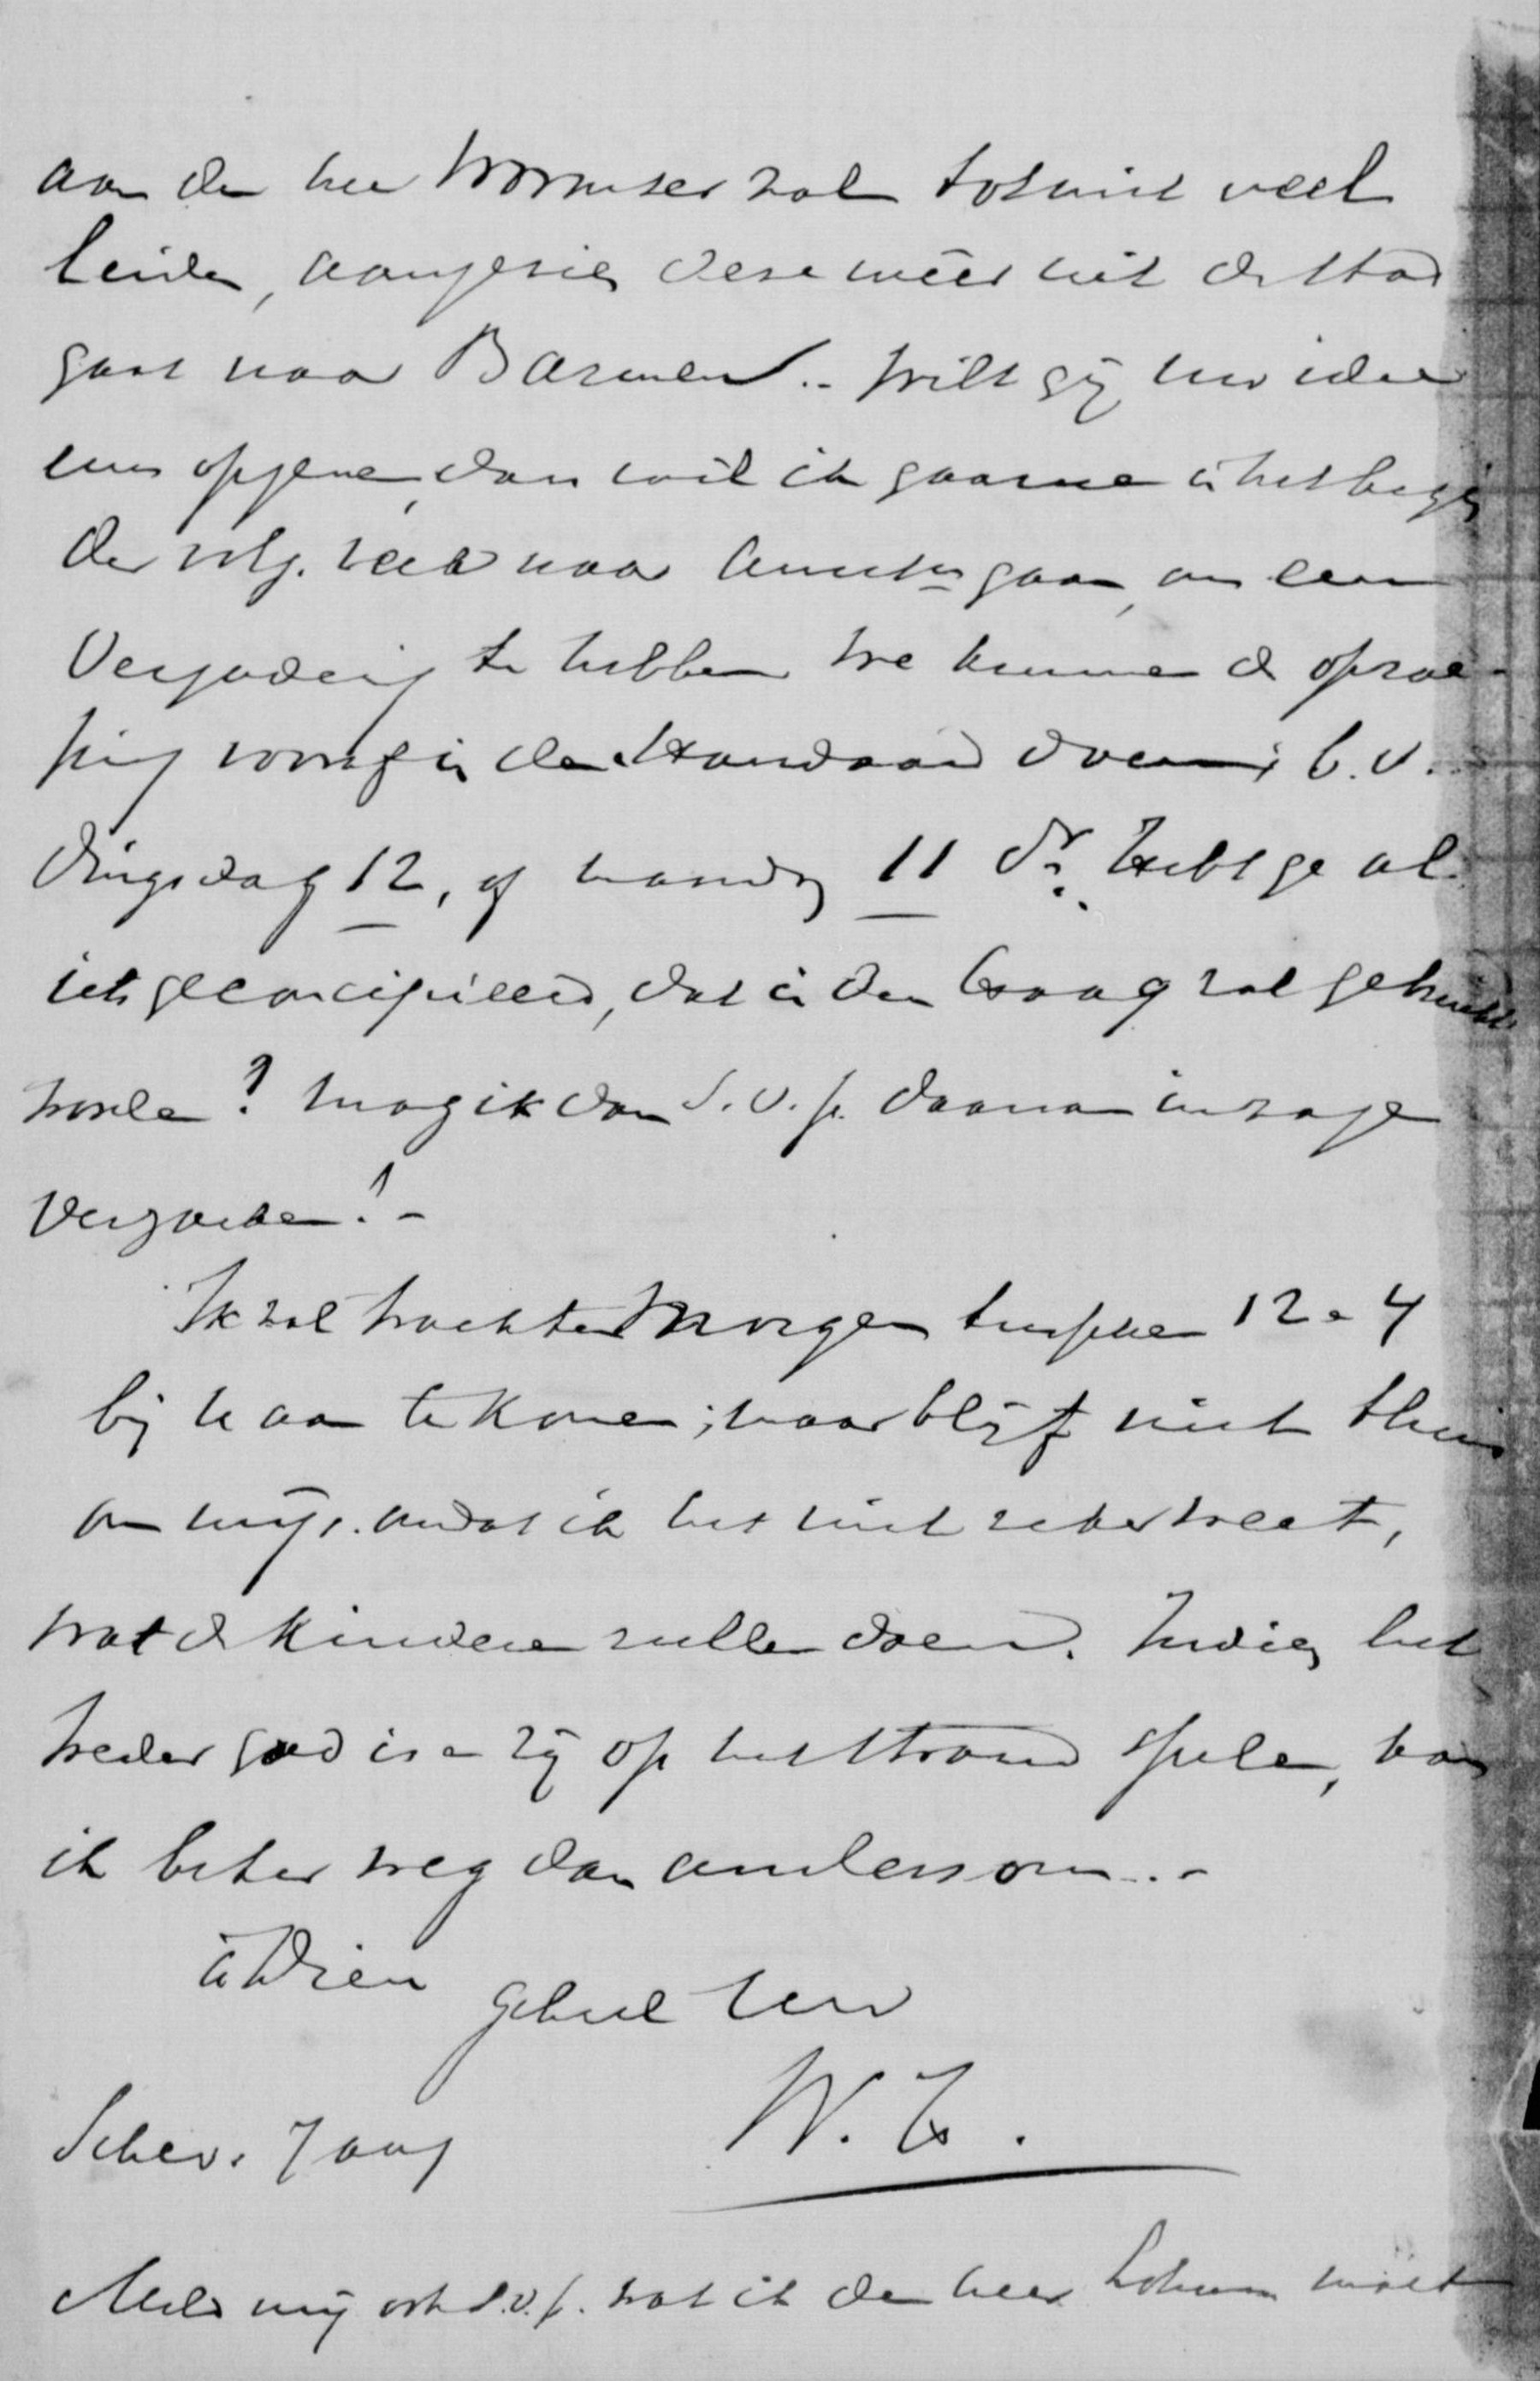 aan den heer Wormser zal tot niet veel
leiden, aangezien deze weêr uit de stad
gaat naar Barmen.. Wilt gij uw idee
eens opgeven, dan wil ik gaarne in het begin
der volg. week naar Amstm gaan, om een
Vergadering te hebben. We kunnen de oproe-
ping vooraf in den Standaard doen; b.v.
Dingsdag 12, of maandag 11 dr. Hebt ge al
iets geconcipieerd, dat in den Haag zal gebruikt
worden? Mag ik dan s.v.p. daarvan inzage
verzoeken? -
Ik zal trachten morgen tusschen 12 a 4
bij u aan te komen; maar blijf niet thuis
om mij. omdat ik het niet zeker weet,
wat de kinderen zullen doen. Indien het
weder goed is en zij op het strand spelen, kan
ik beter weg dan andersom. -
in Dien
geheel Uw
W. H.
Schev. 7 aug
Meld mij ook s.v.p. wat ik den heer Lohman moet